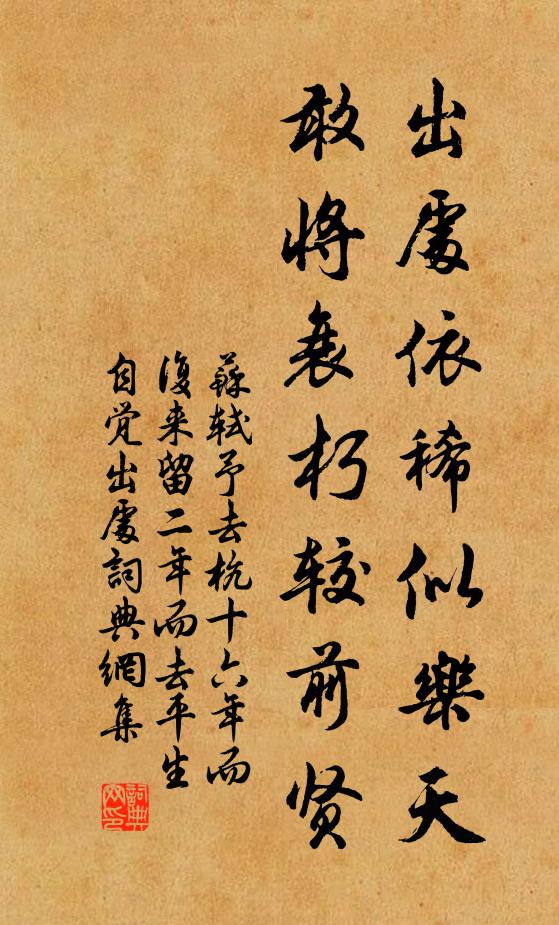 出處依稀似樂天
敢將衰朽较前贤
蘇軾予去杭十六年而
復来留二年而去平生
自觉出處詞典網集
詞典网印